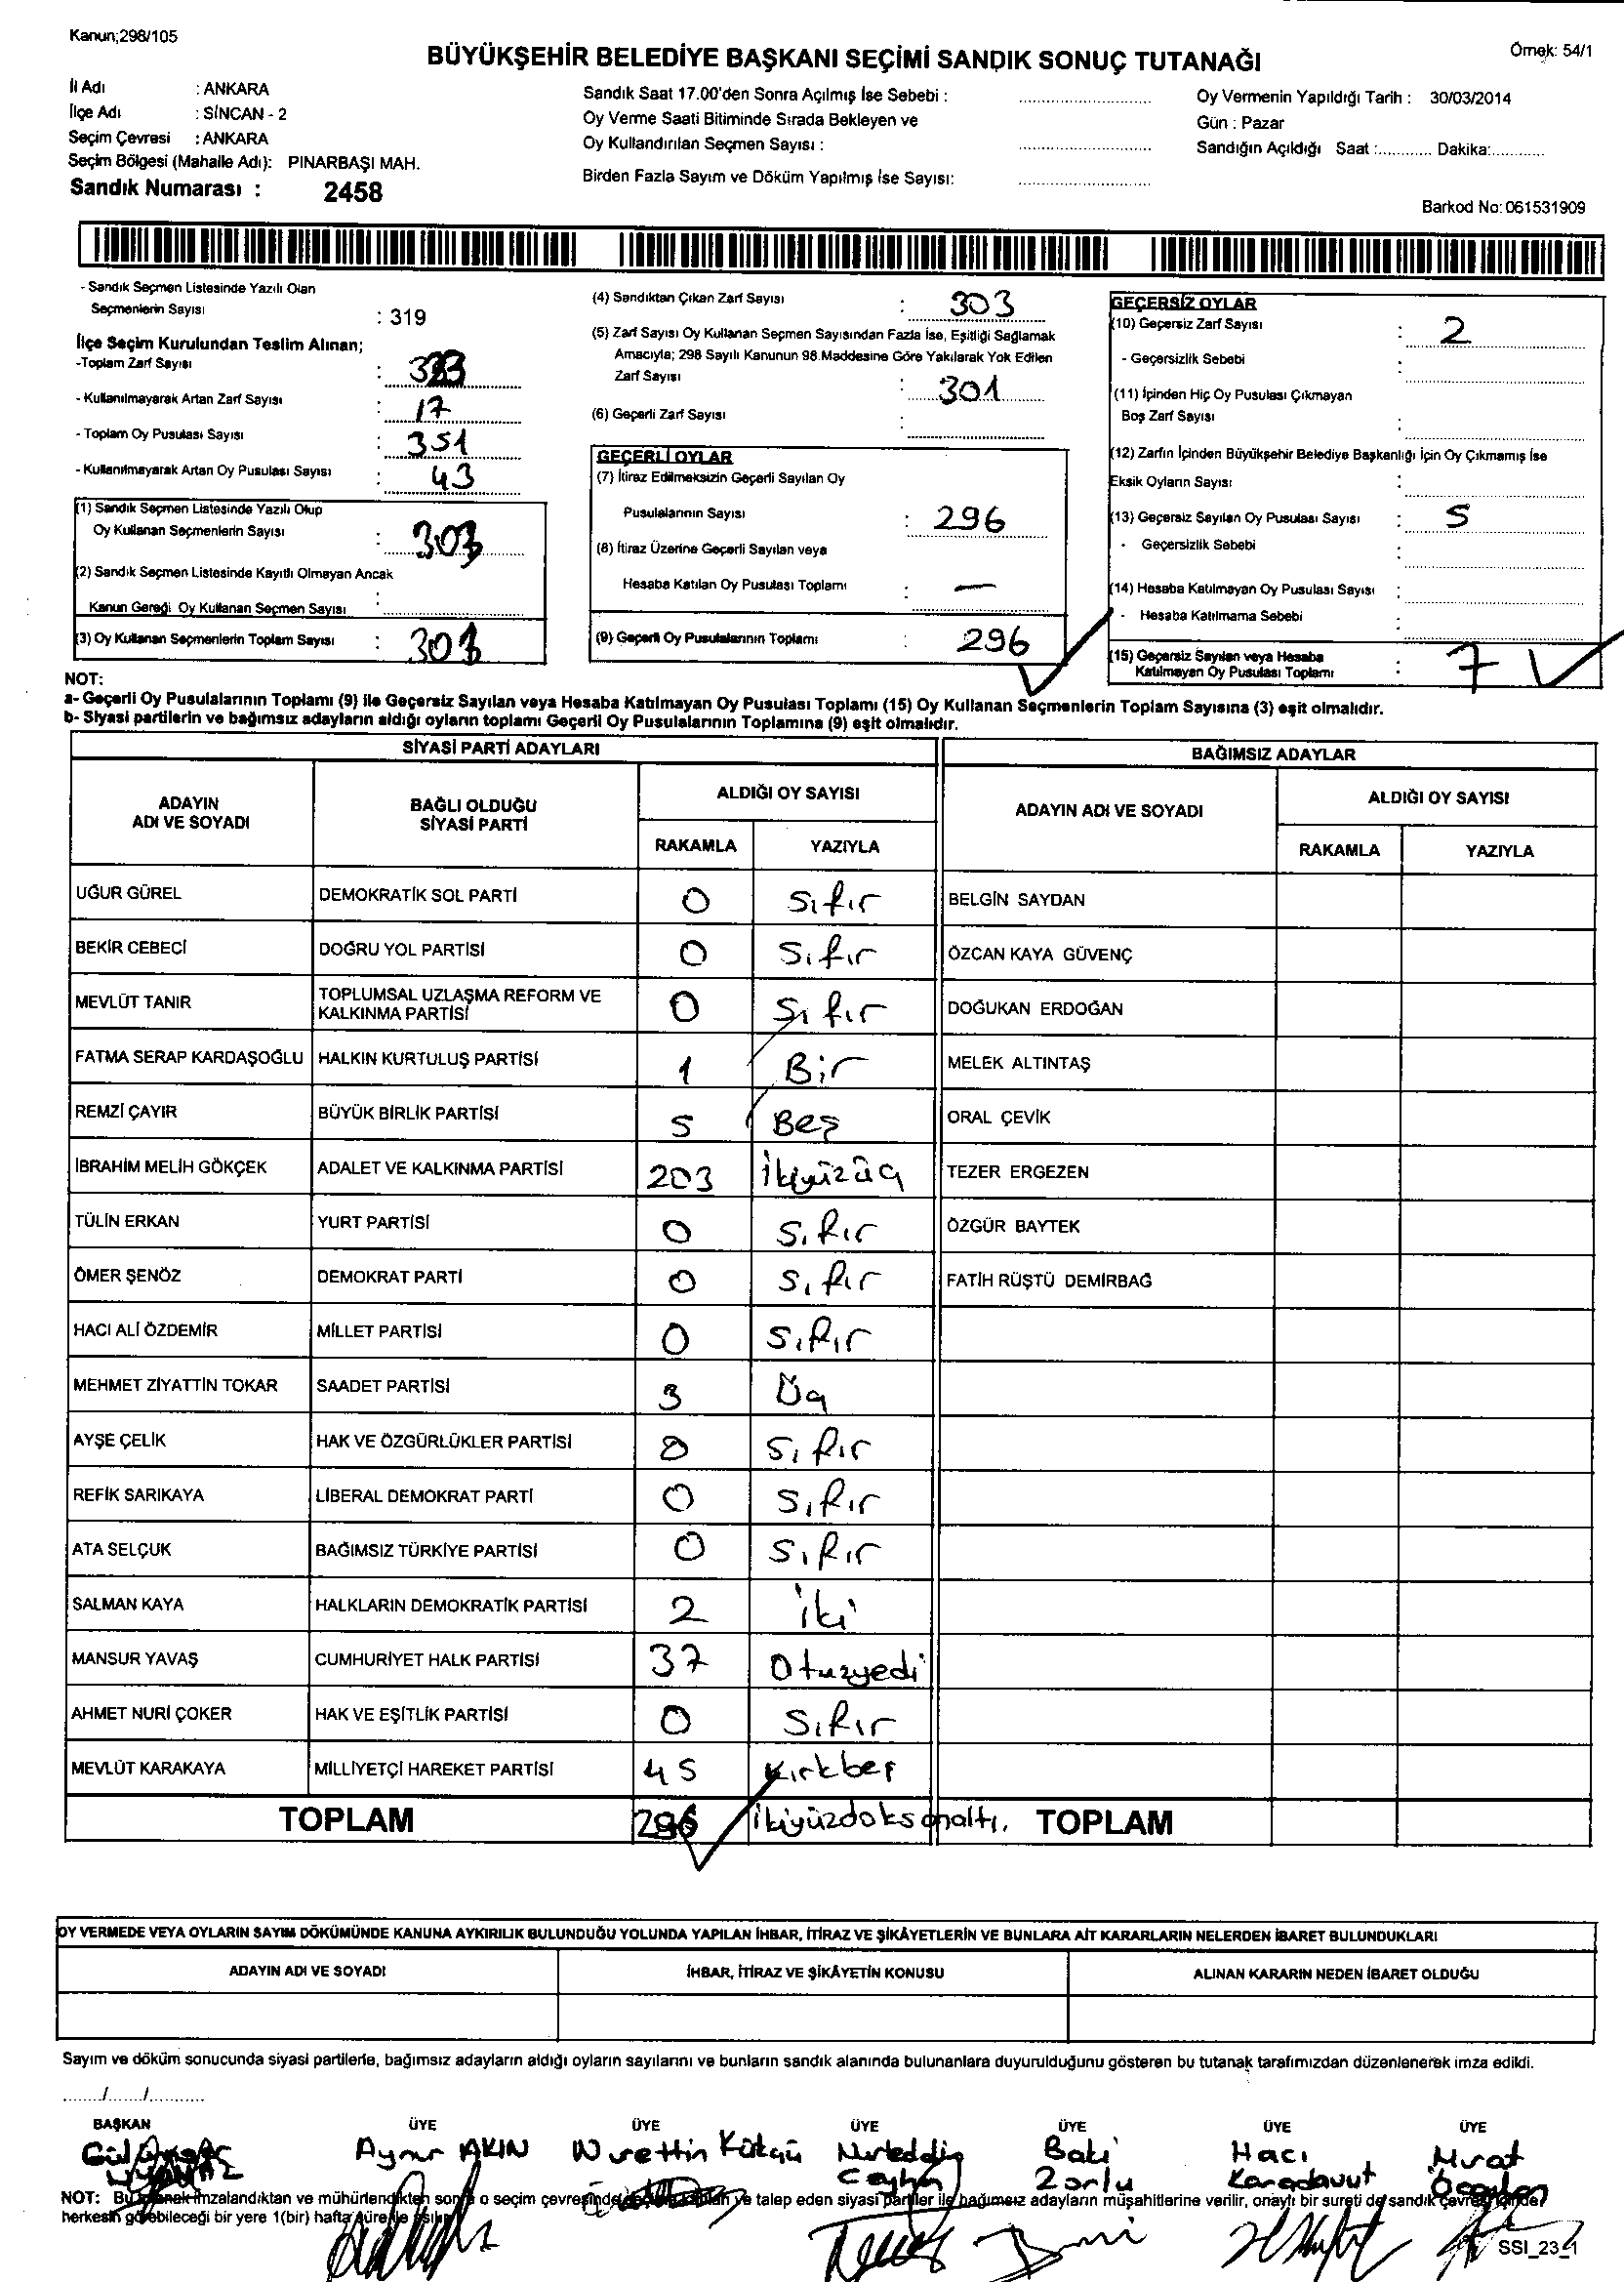 Kanun;298/105
Örnek: 54/1
BÜYÜKŞEHİR BELEDİYE BAŞKANI SEÇİMİ SANDIK SONUÇ TUTANAĞI
İl Adı : ANKARA
İlçe Adı : SİNCAN - 2
Seçim Çevresi : ANKARA
Seçim Bölgesi (Mahalle Adı): PINARBAŞI MAH.
Sandık Numarası : 2458
Sandık Saat 17.00'den Sonra Açılmış İse Sebebi :
Oy Verme Saati Bitiminde Sırada Bekleyen ve
Oy Kullandırılan Seçmen Sayısı :
Birden Fazla Sayım ve Döküm Yapılmış İse Sayısı:
Oy Vermenin Yapıldığı Tarih : 30/03/2014
Gün : Pazar
Sandığın Açıldığı Saat :........... Dakika:...........
Barkod No: 061531909
- Sandık Seçmen Listesinde Yazılı Olan
Seçmenlerin Sayısı : 319
İlçe Seçim Kurulundan Teslim Alınan;
-Toplam Zarf Sayısı :
- Kullanılmayarak Artan Zarf Sayısı : 17
- Toplam Oy Pusulası Sayısı : 351
- Kullanılmayarak Artan Oy Pusulası Sayısı : 43
(1) Sandık Seçmen Listesinde Yazılı Olup
Oy Kullanan Seçmenlerin Sayısı : 303
(2) Sandık Seçmen Listesinde Kayıtlı Olmayan Ancak
Kanun Gereği Oy Kullanan Seçmen Sayısı :
(3) Oy Kullanan Seçmenlerin Toplam Sayısı : 303
(4) Sandıktan Çıkan Zarf Sayısı : 303
(5) Zarf Sayısı Oy Kullanan Seçmen Sayısından Fazla İse, Eşitliği Sağlamak
Amacıyla; 298 Sayılı Kanunun 98.Maddesine Göre Yakılarak Yok Edilen
Zarf Sayısı : 301
(6) Geçerli Zarf Sayısı :
GEÇERLİ OYLAR
(7) İtiraz Edilmeksizin Geçerli Sayılan Oy
Pusulalarının Sayısı : 296
(8) İtiraz Üzerine Geçerli Sayılan veya
Hesaba Katılan Oy Pusulası Toplamı : —
(9) Geçerli Oy Pusulalarının Toplamı : 296
GEÇERSİZ OYLAR
(10) Geçersiz Zarf Sayısı : 2
- Geçersizlik Sebebi :
(11) İçinden Hiç Oy Pusulası Çıkmayan
Boş Zarf Sayısı :
(12) Zarfın İçinden Büyükşehir Belediye Başkanlığı İçin Oy Çıkmamış İse
Eksik Oyların Sayısı :
(13) Geçersiz Sayılan Oy Pusulası Sayısı : 5
- Geçersizlik Sebebi :
(14) Hesaba Katılmayan Oy Pusulası Sayısı :
- Hesaba Katılmama Sebebi :
(15) Geçersiz Sayılan veya Hesaba
Katılmayan Oy Pusulası Toplamı : 7
NOT:
a- Geçerli Oy Pusulalarının Toplamı (9) ile Geçersiz Sayılan veya Hesaba Katılmayan Oy Pusulası Toplamı (15) Oy Kullanan Seçmenlerin Toplam Sayısına (3) eşit olmalıdır.
b- Siyasi partilerin ve bağımsız adayların aldığı oyların toplamı Geçerli Oy Pusulalarının Toplamına (9) eşit olmalıdır.
SİYASİ PARTİ ADAYLARI
ADAYIN ADI VE SOYADI
BAĞLI OLDUĞU SİYASİ PARTİ
ALDIĞI OY SAYISI
RAKAMLA YAZIYLA
UĞUR GÜREL DEMOKRATİK SOL PARTİ 0 Sıfır
BEKİR CEBECİ DOĞRU YOL PARTİSİ 0 Sıfır
MEVLÜT TANIR TOPLUMSAL UZLAŞMA REFORM VE KALKINMA PARTİSİ 0 Sıfır
FATMA SERAP KARDAŞOĞLU HALKIN KURTULUŞ PARTİSİ 1 Bir
REMZİ ÇAYIR BÜYÜK BİRLİK PARTİSİ 5 Beş
İBRAHİM MELİH GÖKÇEK ADALET VE KALKINMA PARTİSİ 203 İkiyüzüç
TÜLİN ERKAN YURT PARTİSİ 0 Sıfır
ÖMER ŞENÖZ DEMOKRAT PARTİ 0 Sıfır
HACI ALİ ÖZDEMİR MİLLET PARTİSİ 0 Sıfır
MEHMET ZİYATTİN TOKAR SAADET PARTİSİ 3 Üç
AYŞE ÇELİK HAK VE ÖZGÜRLÜKLER PARTİSİ 0 Sıfır
REFİK SARIKAYA LİBERAL DEMOKRAT PARTİ 0 Sıfır
ATA SELÇUK BAĞIMSIZ TÜRKİYE PARTİSİ 0 Sıfır
SALMAN KAYA HALKLARIN DEMOKRATİK PARTİSİ 2 İki
MANSUR YAVAŞ CUMHURİYET HALK PARTİSİ 37 Otuzyedi
AHMET NURİ ÇOKER HAK VE EŞİTLİK PARTİSİ 0 Sıfır
MEVLÜT KARAKAYA MİLLİYETÇİ HAREKET PARTİSİ 45 Kırkbeş
TOPLAM 296 İkiyüzdoksanaltı.
BAĞIMSIZ ADAYLAR
ADAYIN ADI VE SOYADI
ALDIĞI OY SAYISI
RAKAMLA YAZIYLA
BELGİN SAYDAN
ÖZCAN KAYA GÜVENÇ
DOĞUKAN ERDOĞAN
MELEK ALTINTAŞ
ORAL ÇEVİK
TEZER ERGEZEN
ÖZGÜR BAYTEK
FATİH RÜŞTÜ DEMİRBAĞ
TOPLAM
OY VERMEDE VEYA OYLARIN SAYIM DÖKÜMÜNDE KANUNA AYKIRILIK BULUNDUĞU YOLUNDA YAPILAN İHBAR, İTİRAZ VE ŞİKÂYETLERİN VE BUNLARA AİT KARARLARIN NELERDEN İBARET BULUNDUKLARI
ADAYIN ADI VE SOYADI
İHBAR, İTİRAZ VE ŞİKÂYETİN KONUSU
ALINAN KARARIN NEDEN İBARET OLDUĞU
Sayım ve döküm sonucunda siyasi partilerle, bağımsız adayların aldığı oyların sayılarını ve bunların sandık alanında bulunanlara duyurulduğunu gösteren bu tutanak tarafımızdan düzenlenerek imza edildi.
......./......./...........
BAŞKAN ÜYE ÜYE ÜYE ÜYE ÜYE ÜYE
Aynur AKIN Nurettin Nureddin Baki Hacı Murat
Ceyhan Zorlu Karadavut
NOT: Bu tutanak imzalandıktan ve mühürlendikten sonra o seçim çevresinde ve talep eden siyasi partiler ile bağımsız adayların müşahitlerine verilir, onaylı bir sureti de sandık çevresi içinde
herkesin görebileceği bir yere 1(bir) hafta süre ile asılır.
SSI_23_1